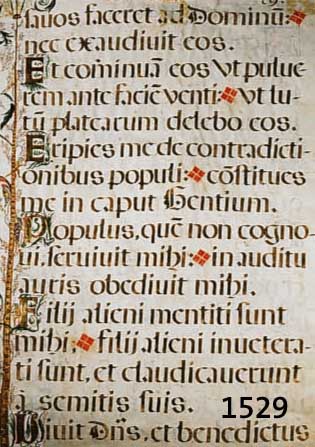 saluos faceret ad Dominū:
nec exaudiuit eos.
Et cōminuā eos vt pulue-
rem ante faciē venti: vt lu-
tū platearum delebo eos.
Eripies me de cōtradicti-
onibus populi: cōstitues
me in caput Gentium.
Populus, quē non cogno-
ui, seruiuit mihi: in auditu
auris obediuit mihi.
Filij alieni mentiti sunt
mihi: filij alieni inuetera-
ti sunt, et claudicauerunt
à semitis suis. 1529
Viuit Dn̄s, et benedictus